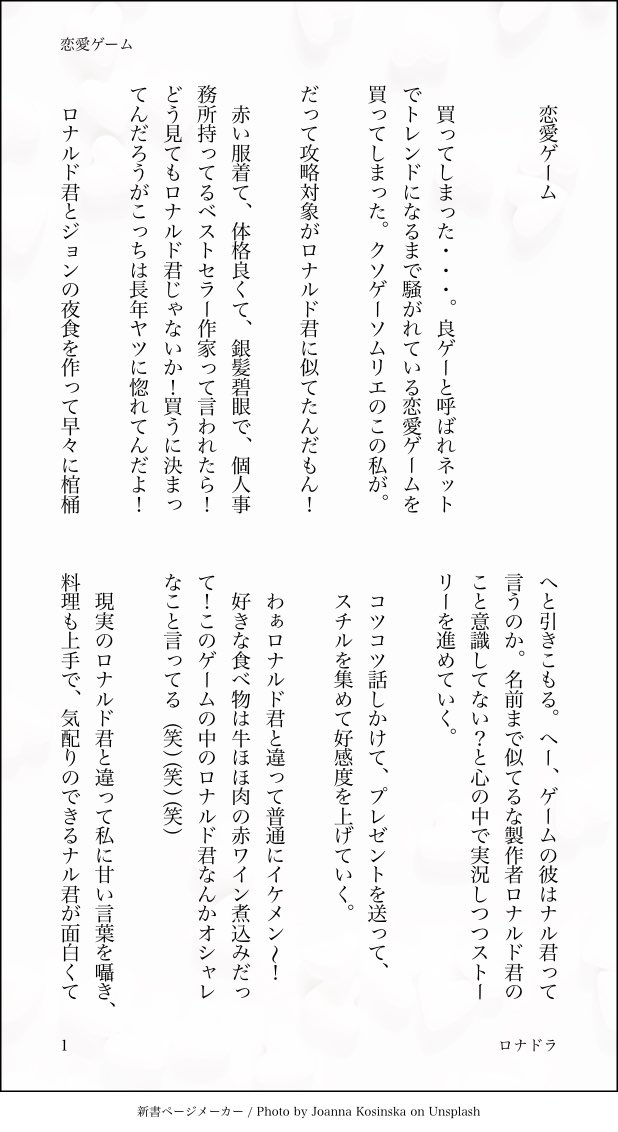 恋愛ゲーム
恋愛ゲーム
買ってしまった・・・。良ゲーと呼ばれネット
でトレンドになるまで騒がれている恋愛ゲームを
買ってしまった。クソゲーソムリエのこの私が。
だって攻略対象がロナルド君に似てたんだもん！
赤い服着て、体格良くて、銀髪碧眼で、個人事
務所持ってるベストセラー作家って言われたら！
どう見てもロナルド君じゃないか！買うに決まっ
てんだろうがこっちは長年ヤツに惚れてんだよ！
ロナルド君とジョンの夜食を作って早々に棺桶
へと引きこもる。へー、ゲームの彼はナル君って
言うのか。名前まで似てるな製作者ロナルド君の
こと意識してない？と心の中で実況しつつストー
リーを進めていく。
コツコツ話しかけて、プレゼントを送って、
スチルを集めて好感度を上げていく。
わぁロナルド君と違って普通にイケメン〜！
好きな食べ物は牛ほほ肉の赤ワイン煮込みだっ
て！このゲームの中のロナルド君なんかオシャレ
なこと言ってる（笑）（笑）（笑）
現実のロナルド君と違って私に甘い言葉を囁き、
料理も上手で、気配りのできるナル君が面白くて
1
ロナドラ
新書ページメーカー / Photo by Joanna Kosinska on Unsplash